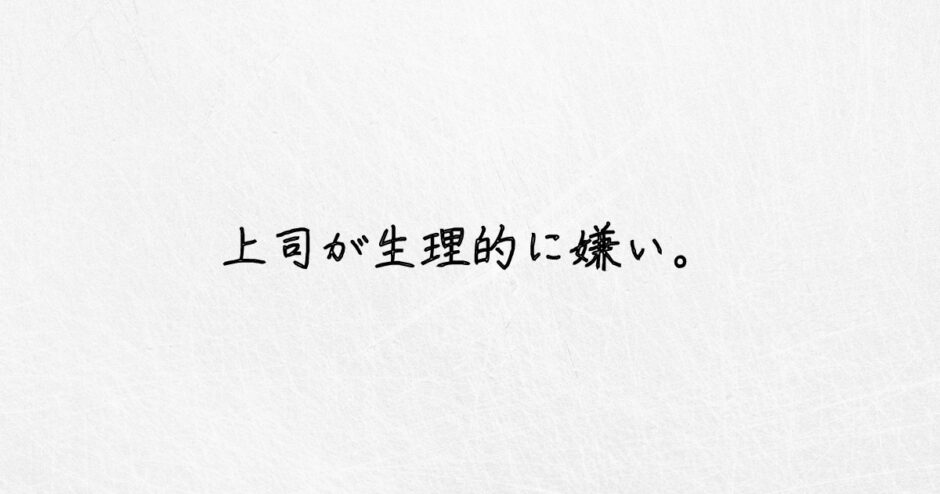 上司が生理的に嫌い。